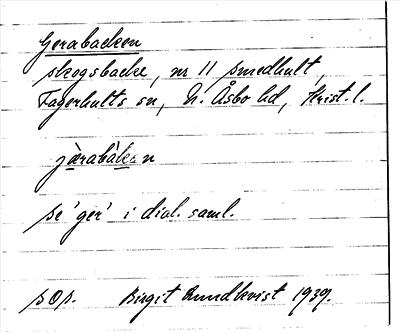 Gerabacken
skogsbacke, nr 11 Smedhult,
Fagerhults sn, N. Åsbo hd, Krist. l.
jàrabàkan
se 'ger' i dial. saml.
Birgit Rundkvist 1939.